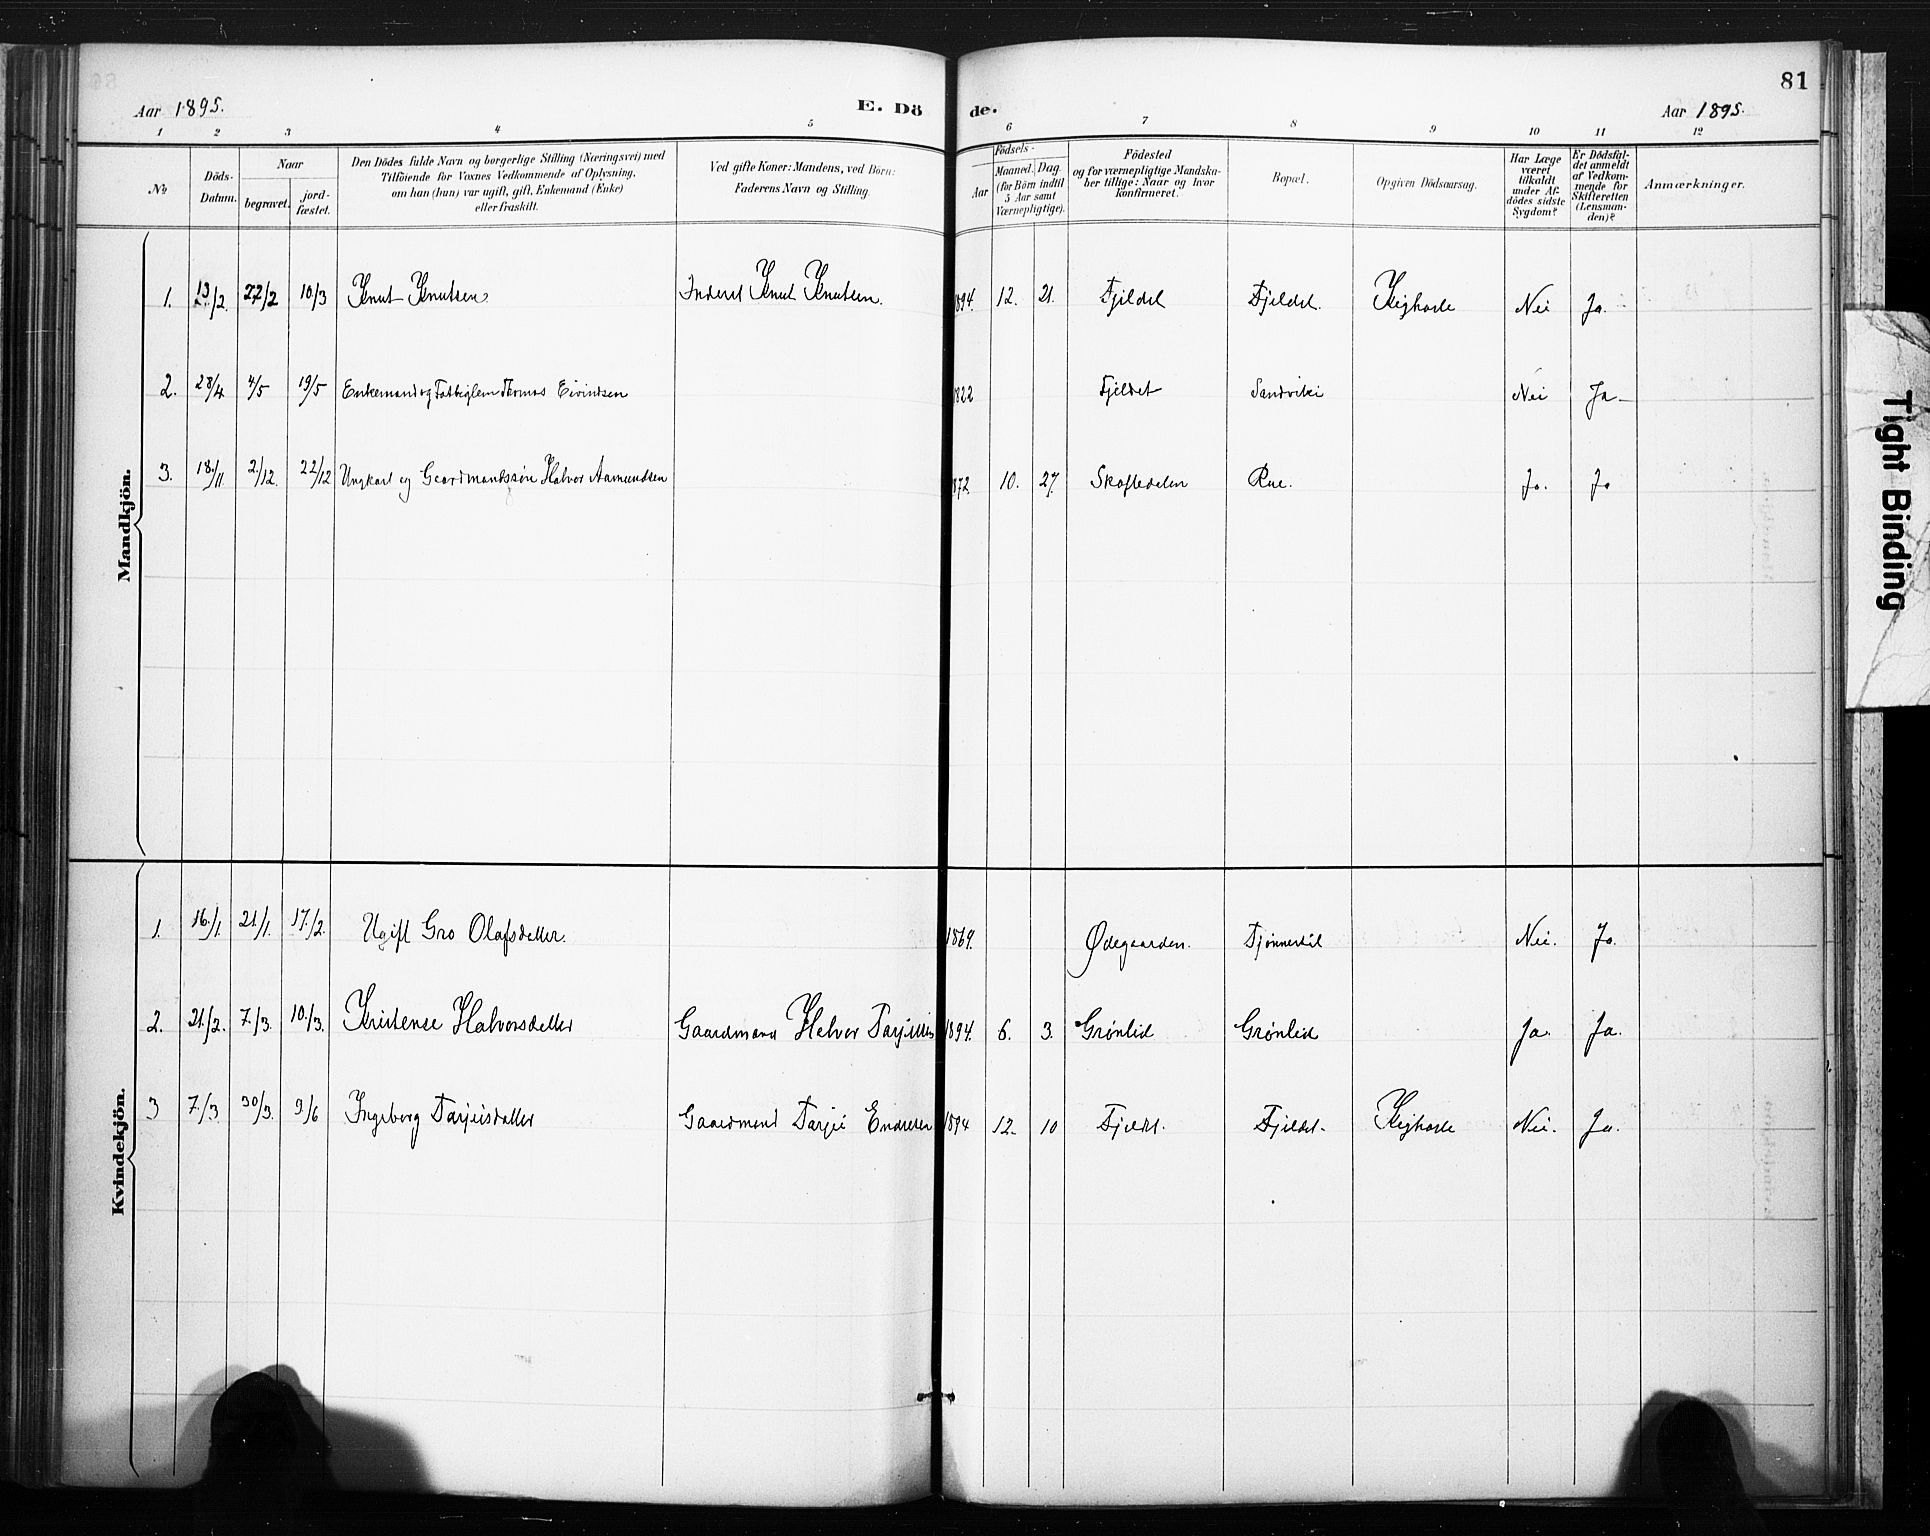 81
Aar 1895.
E. Dö
de.
Aar 1895.
1 2 3 4 5 6 7 8 9 10 11 12
№
Döds-
Datum.
Naar
begravet.
jord-
fæstet.
Den Dödes fulde Navn og borgerlige Stilling (Næringsvei) med
Tilföiende for Voxnes Vedkommende af Oplysning,
om han (hun) var ugift, gift, Enkemand (Enke)
eller fraskilt.
Ved gifte Koner: Mandens, ved Börn:
Faderens Navn og Stilling.
Födsels-
Aar
Maaned.
Dag.
(for Börn indtil
5 Aar samt
Værnepligtige).
Födested
og for værnepligtige Mandska-
ber tillige: Naar og hvor
konfirmeret.
Bopæl.
Opgiven Dödsaarsag.
Har Læge
været
tilkaldt
under Af-
dödes sidste
Sygdom?
Er Dödsfal-
det anmeldt
af Vedkom-
mende for
Skifteretten
(Lensman-
den)?
Anmærkninger.
Mandkjön.
1. 13/2. 27/2 10/3 Knut Knutsen Inderst Knut Knutsen. 1894. 12. 21. Fjeldet Fjeldet. Kighoste Nei Ja.
2. 28/4 4/5 19/5 Enkemand og Fattiglem Thomas Eivindsen 1822 Fjeldet Sandviki Nei Ja
3. 18./11 2./12. 22/12 Ungkarl og Gaardmandssøn Halvor Aamundsen 1872. 10. 27. Skoftedalen Rue. Ja. Ja
Kvindekjön.
1. 16./1. 21/1. 17./2. Ugift Gro Olafsdatter. 1869. Ødegaarden. Nei. Ja.
2. 21./2. 7./3. 10./3. Kristense Halvorsdatter Gaardmand Halvor Tarjeisen 1894. 6. 3. Grønlid Grønlid Ja. Ja.
3 7./3 30/3. 3/6 Ingeborg Tarjeisdatter Gaardmand Tarjei Endresen 1894 12. 10 Fjeldet. Fjeldet. Kighoste Nei. Ja.
Tight Binding